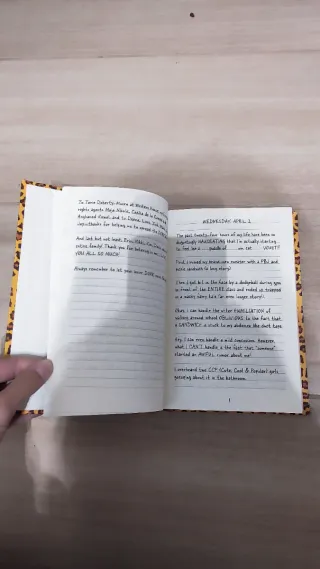 To Torie Doherty-Munro at Writers House
rights agents Maja Nikolic, Cecilia de la
Angharad Kowal, and to Deena,
for helping me to
And last but not least, Erin, Nikki, Kim,
entire family! Thank you for believing in
YOU ALL SO MUCH!
Always remember to let your inner DORK
WEDNESDAY, APRIL 2
The past twenty-four hours of my life have been so
disgustingly NAUSEATING that I'm actually starting
to feel like a puddle of cat VOMIT!
First, I ruined my brand-new sweater with a PBJ and
pickle sandwich (a long story).
Then I got hit in the face by a dodgeball during gym
in front of the ENTIRE class and ended up trapped
in a wacky fairy tale (an even longer story!).
Okay, I can handle the utter HUMILIATION of
walking around school OBLIVIOUS to the fact that
a SANDWICH is stuck to my
Hey, I can even handle a mild concussion. However,
what I CAN'T handle is the fact that "someone"
started an AWFUL rumor about me!
I overheard two CCP (Cute, Cool & Popular) girls
gossiping about it in the bathroom.
1